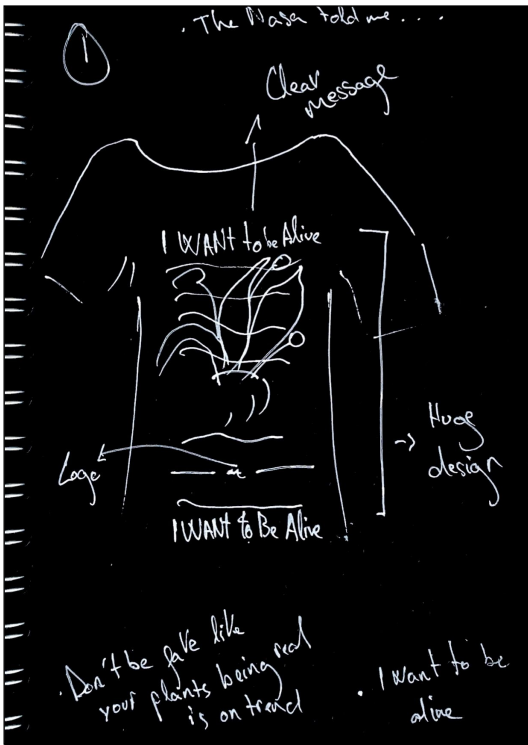 1
. The Nasa told me....
Clear
message
I WANT to be Alive
Logo
-> Huge
design
I WANT to Be Alive
. Don't be fake like
your plants being real
is on trend
. I want to be
alive